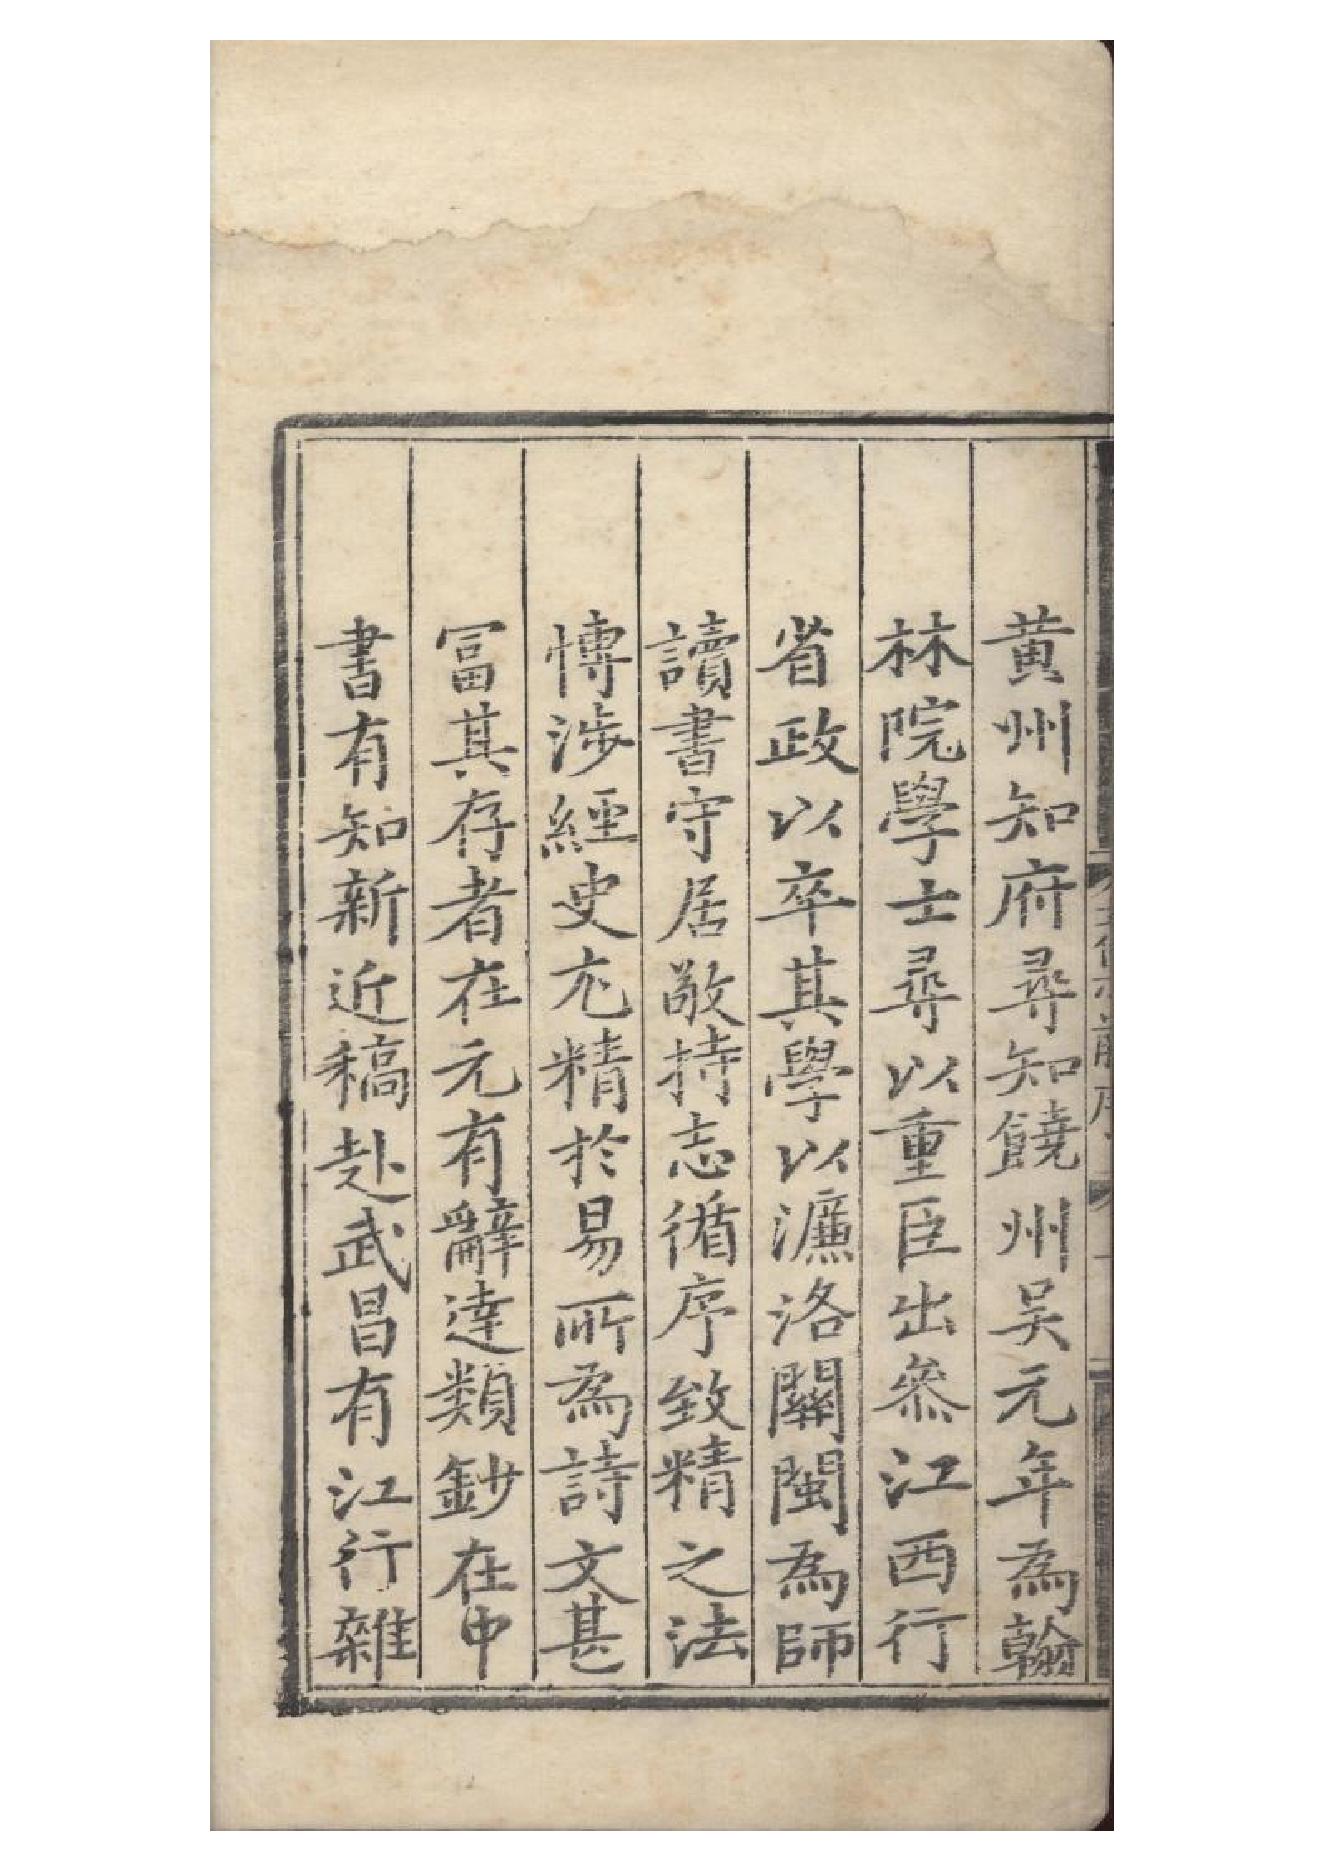 黄州知府尋知饒州吴元年為翰
林院學士尋以重臣出叅江西行
省政以卒其學以濂洛關閩為師
讀書守居敬持志循序致精之法
愽涉經史尤精於易所為詩文甚
冨其存者在元有辭達類鈔在中
書有知新近稿赴武昌有江行雜